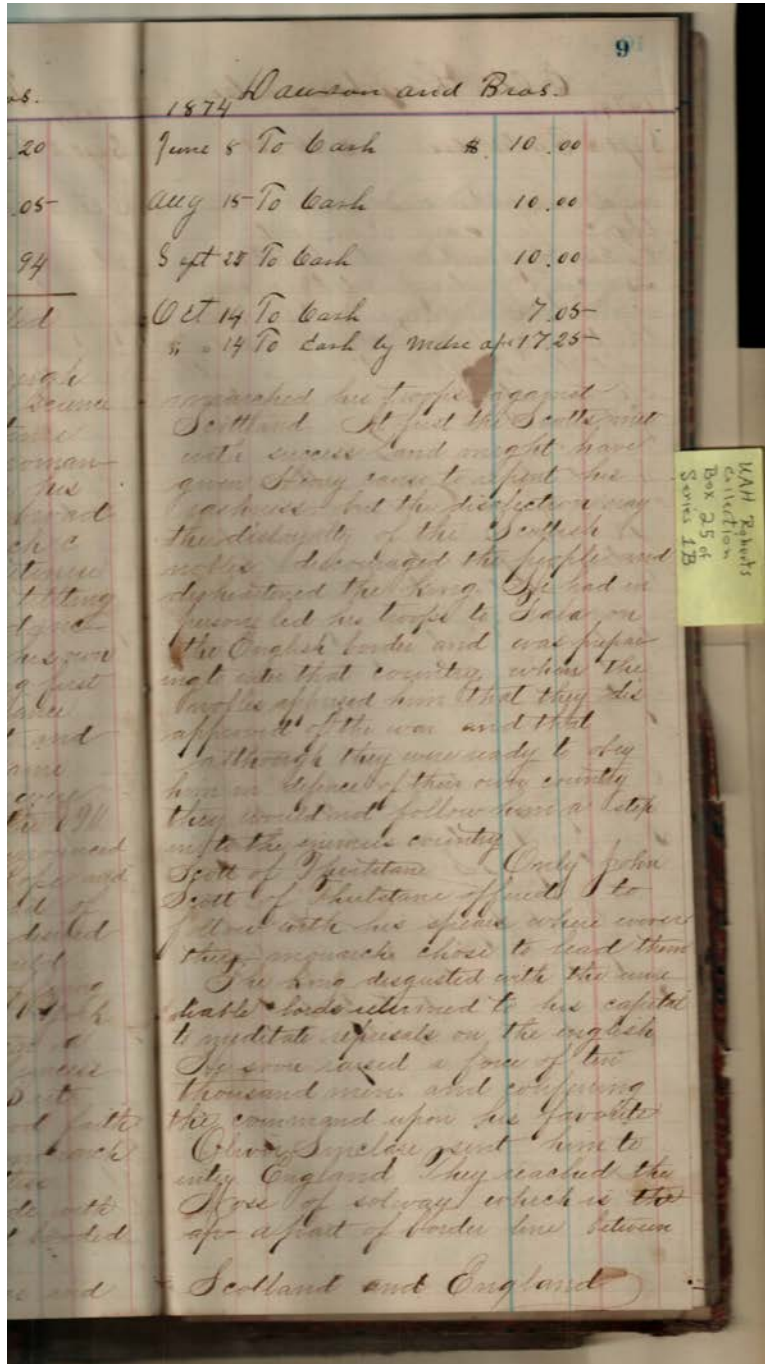 9
Dawson and Bros.
1874
June 8 To Cash $ 10.00
Aug 15 To Cash 10.00
Sept 25 To Cash 10.00
Oct 14 To Cash 7.05
" " 14 To Cash by Mdse 17.25
marched his troops against
Scottland At first the Scotts met
with success and might have
given Henry cause to repent his
rashness but the
the disloyalty of the Scottish
nobles discouraged the people and
disheartened the King He had in
person led his troops to on
the English border and was prepar
ing t enter that country when the
him that they dis
approved of the war and that
although they were ready to obey
him in defence of their own country
they would not follow him a step
into the enemies country
Scott of Only John
Scott of offered to
follow with his spears where
they monarch chose to lead them
The King disgusted with the unre
liable lords returned to his capital
to meditate reprisals on the english
He soon raised a force of ten
thousand men and
the command upon his favorite
Oliver Sinclair sent him to
England They reached the
of solway which is the
a part of border line between
Scotland and England
os.
20
.05
94
Science
roman
his
road
tilting
his own
first
and
the
faith
with
and
UAH Roberts
Collection
Box 25 of
Series 1B